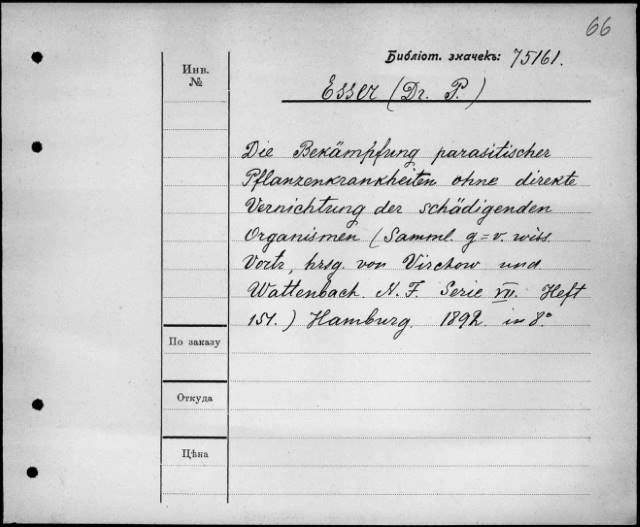 66
Библіот. значекъ: 75161.
Инв.
№
Esser (Dr. P.)
Die Bekämpfung parasitischer
Pflanzenkrankheiten ohne direkte
Vernichtung der schädigenden
Organismen (Samml. g=v. wiss.
Vortr, hrsg. von Virchow und
Wattenbach. N. F. Serie VII. Heft
151.) Hamburg. 1892. in 8°
По заказу
Откуда
Цѣна